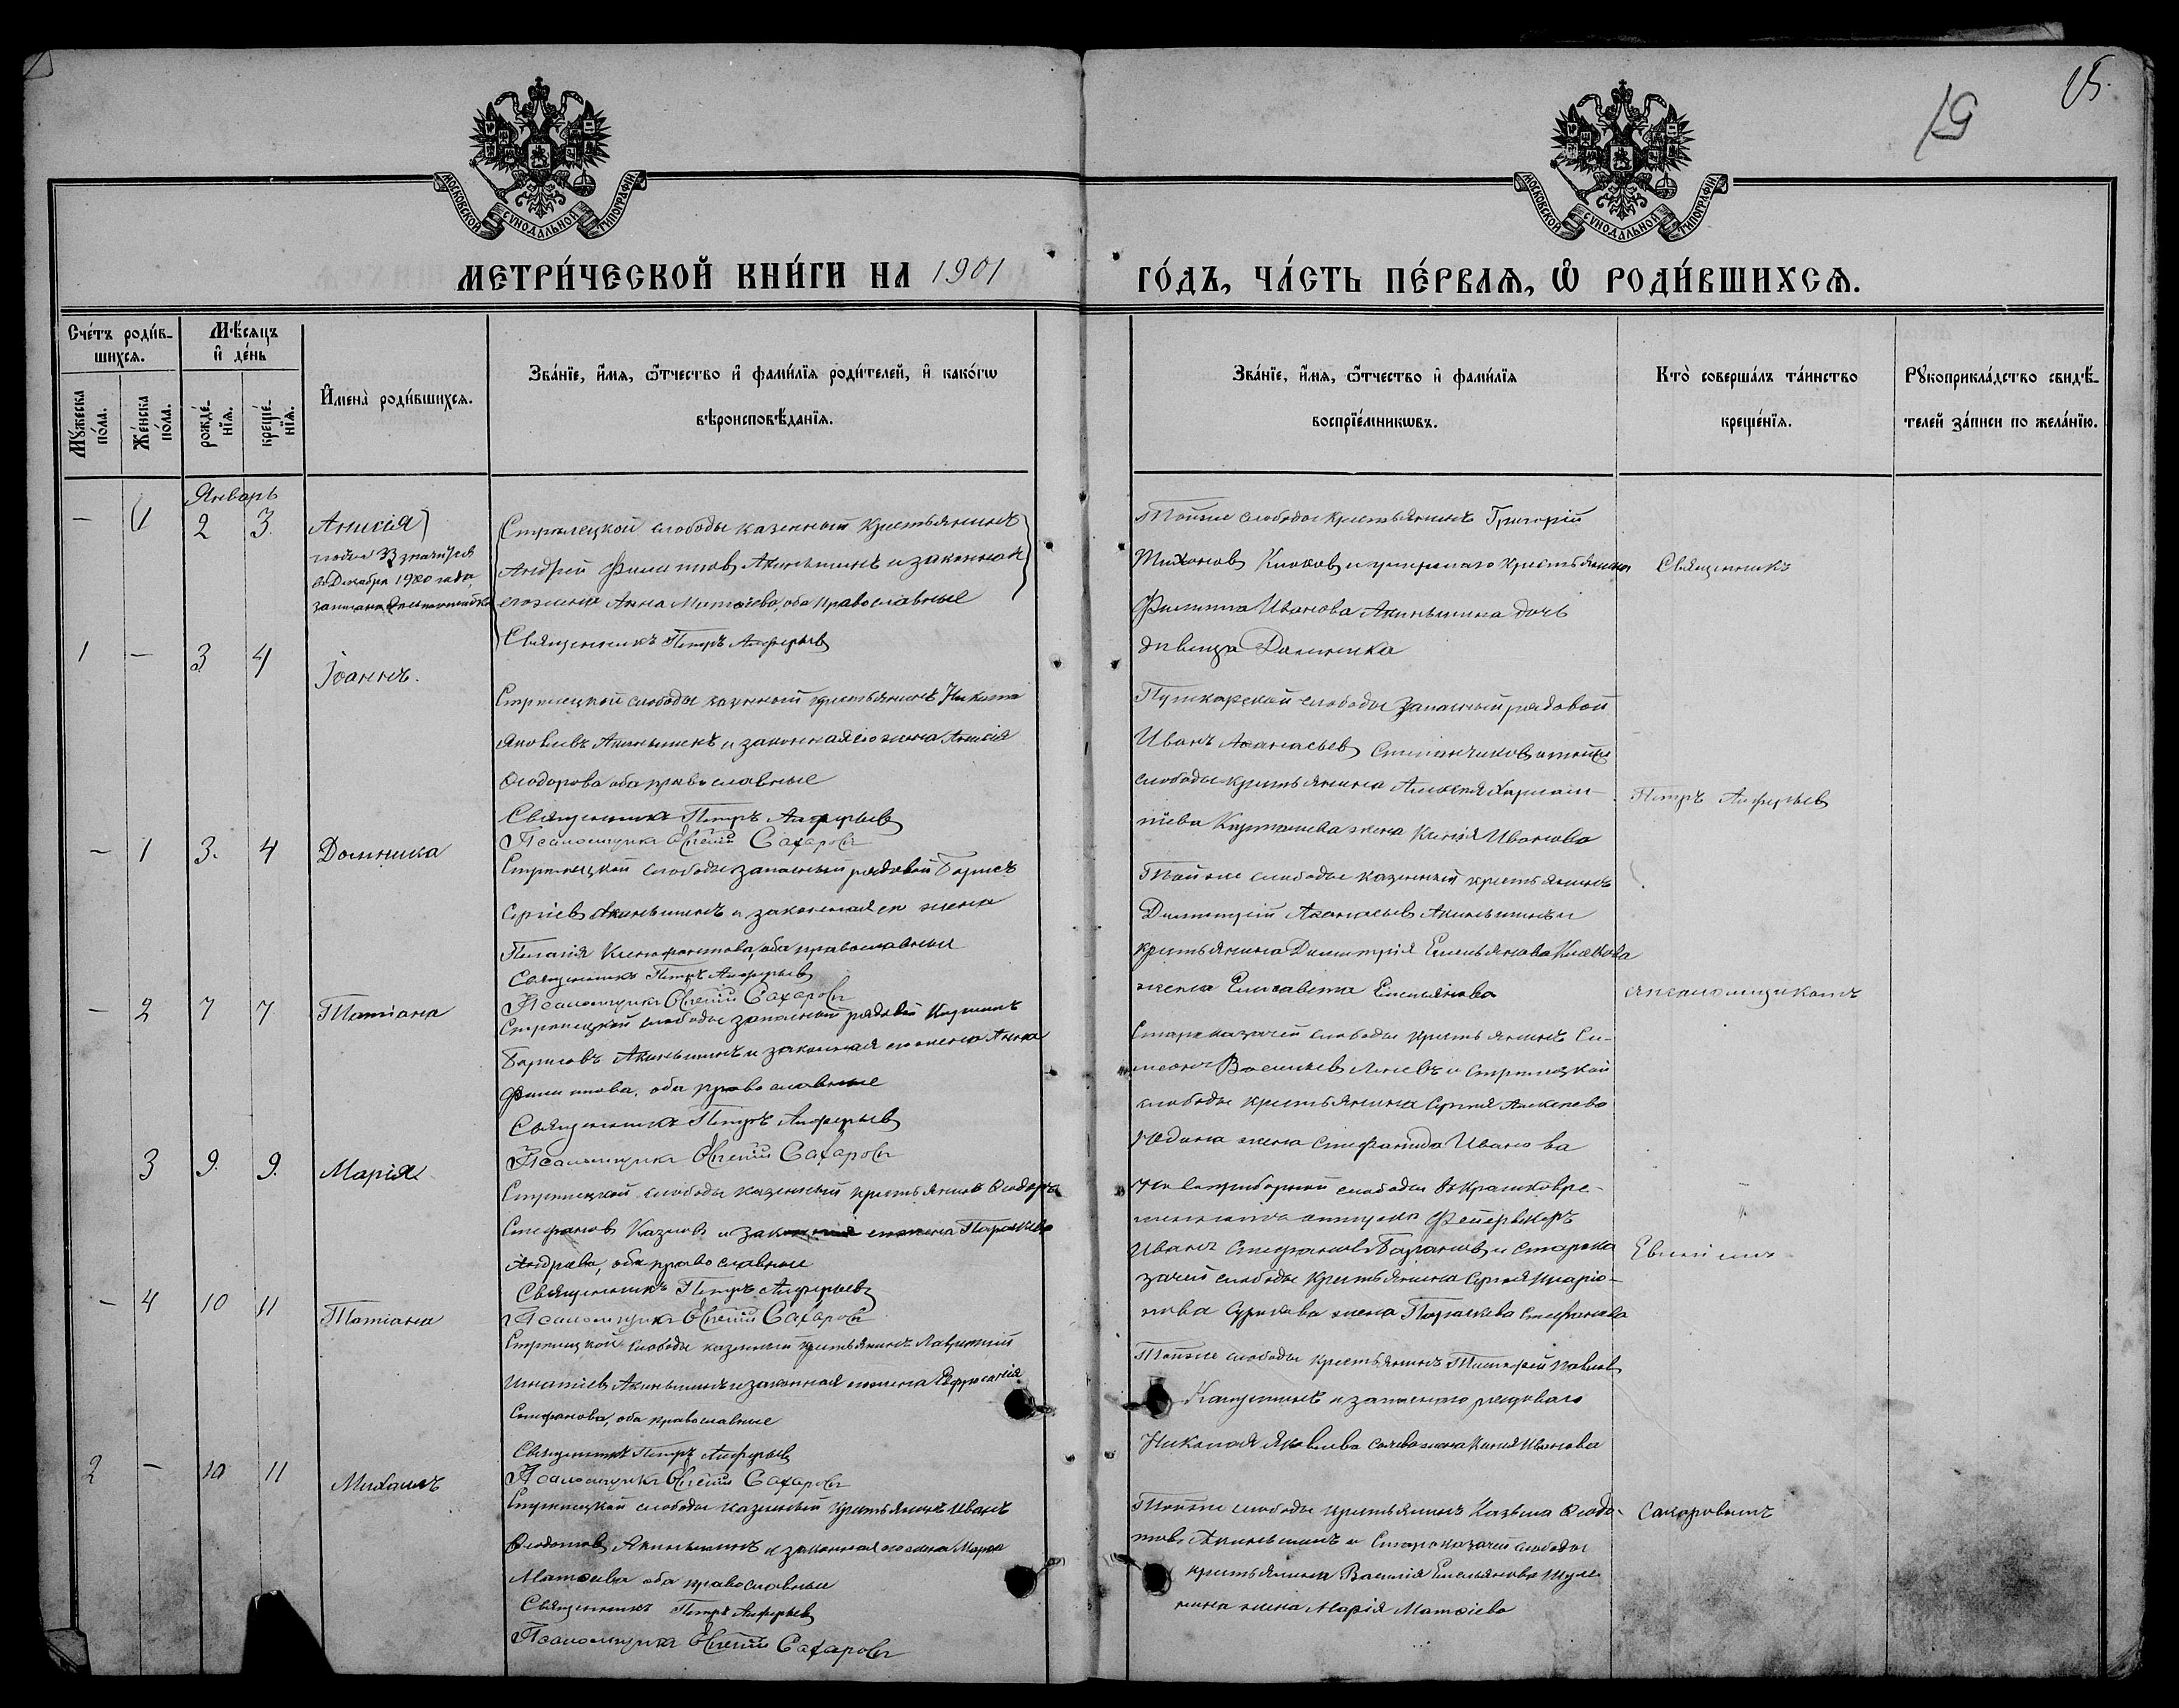 15.
15
МОСКОВСКОЙ СѴНОДАЛЬНОЙ ТИПОГРАФІИ.
МОСКОВСКОЙ СѴНОДАЛЬНОЙ ТИПОГРАФІИ.
МЕТРИ́ЧЕСКОЙ КНИ́ГИ НА 1901 ГО́ДЪ, ЧА́СТЬ ПЕ́РВАѦ, Ѡ҆ РОДИ́ВШИХСѦ.
Сче́тъ роди́в-
шихсѧ.
Мꙋ́жеска по́ла.
Же́нска по́ла.
Мѣ́сѧцъ
и҆ де́нь
рожде́-
нїѧ.
креще́-
нїѧ.
И҆мена̀ роди́вшихсѧ.
Зва́нїе, и҆́мѧ, ѻ҆́тчество и҆ фами́лїѧ роди́телей, и҆ како́гѡ
вѣроисповѣ́данїѧ.
Зва́нїе, и҆́мѧ, ѻ҆́тчество и҆ фами́лїѧ
воспрїе́мникѡвъ.
Кто̀ соверша́лъ та́инство
креще́нїѧ.
Рꙋкоприкла́дство свидѣ́-
телей за́писи по жела́нїю.
Январь
— 1 2 3. Анисія
Стрелецкой слободы казенный крестьянинъ
Андрей Филиповъ Акиньшинъ и законная
его жена Анна Матѳіева, оба православные
Священникъ Петръ Алферьевъ
Тойже слободы крестьянинъ Григорій
Тихоновъ Клоковъ и крестьянина
Филиппа Иванова Акиньшина дочь
дѣвица Домника
Священникъ
1 — 3 4 Іоаннъ.
Стрелецкой слободы казенный крестьянинъ Никита
Яковлевъ Акиньшинъ и законная его жена Анисія
Ѳеодорова оба православные
Священникъ Петръ Алферьевъ
Псаломщикъ Евгеній Сахаровъ
Пушкарской слободы запасный рядовой
Иванъ Аѳанасьевъ
слободы крестьянина Алексѣя
жена Ксенія Иванова
Петръ Алферьевъ
— 1 3. 4 Домника
Стрелецкой слободы запасный рядовой Борисъ
Сергіевъ Акиньшинъ и законная его жена
Пелагія Ксенофонтова, оба православные
Священникъ Петръ Алферьевъ
Псаломщикъ Евгеній Сахаровъ
Тойже слободы казенный крестьянинъ
Димитрій Аѳанасьевъ Акиньшинъ и
крестьянина Димитрія Емельянова Клокова
жена Елисавета Емельянова
съ псаломщикомъ
— 2 7 7 Татіана
Стрелецкой слободы запасный рядовой
Борисовъ Акиньшинъ и законная его жена Анна
Филипова, оба православные
Священникъ Петръ Алферьевъ
Псаломщикъ Евгеній Сахаровъ
Староказачей слободы крестьянинъ Си-
меонъ Васильевъ и Стрелецкой
слободы крестьянина Сергія
Юдина жена Стефанида Иванова
3 9. 9. Марія
Стрелецкой слободы казенный крестьянинъ Ѳеодоръ
Стефановъ и законная его жена Параскева
Андреева, оба православные
Священникъ Петръ Алферьевъ
Псаломщикъ Евгеній Сахаровъ
слободы въ кратковре-
Фейерверкеръ
Иванъ Стефановъ и Старока
зачей слободы крестьянина Сергія Иларіо-
нова жена Параскева Стефанова
Евгеніемъ
— 4 10 11 Татіана
Стрелецкой слободы казенный крестьянинъ Лаврентій
Игнатіевъ Акиньшинъ и законная его жена Евфросинія
Стефанова, оба православные
Священникъ Петръ Алферьевъ
Псаломщикъ Евгеній Сахаровъ
Тойже слободы крестьянинъ Тимофей Павловъ
и запаснаго рядоваго
Николая Яковлева жена Ксенія Иванова
2 — 10 11 Михаилъ
Стрелецкой слободы казенный крестьянинъ Иванъ
Ѳедотовъ Акиньшинъ и законная его жена Марѳа
Матѳіева оба православные
Священникъ Петръ Алферьевъ
Псаломщикъ Евгеній Сахаровъ
Тойже слободы крестьянинъ Козьма Ѳедо-
товъ Акиньшинъ и Староказачей слободы
крестьянина Василія Емельянова
жена Марія Матѳіева
Сахаровымъ